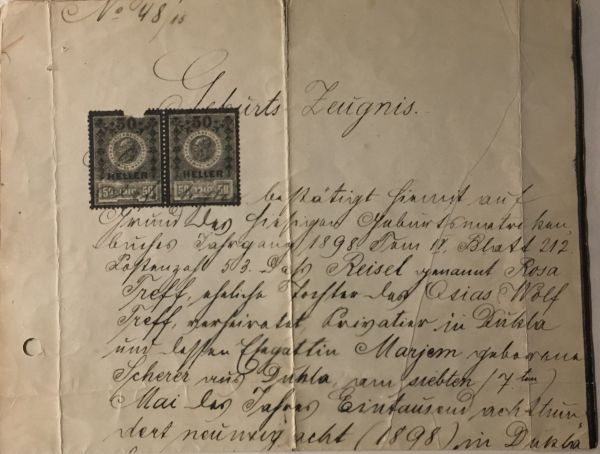 No 48/15
Geburts-Zeugnis.
50 50
HELLER HELLER
50 50 50 50
bestätigt hiemit auf
Grund des hiesigen Geburtsmatriken,
buches Jahrgang 1898 Tom II, Blatt 212
Postenzahl 53. Daß Reisel genannt Rosa
Treff, eheliche Tochter des Osias Wolf
Treff, verheiratet, Privatier in Dukla
und dessen Ehegattin Marjem geborene
Scherer aus Dukla, am siebten (7ten)
Mai des Jahres Eintausend achthun-
dert neunzig acht (1898) in Dukla